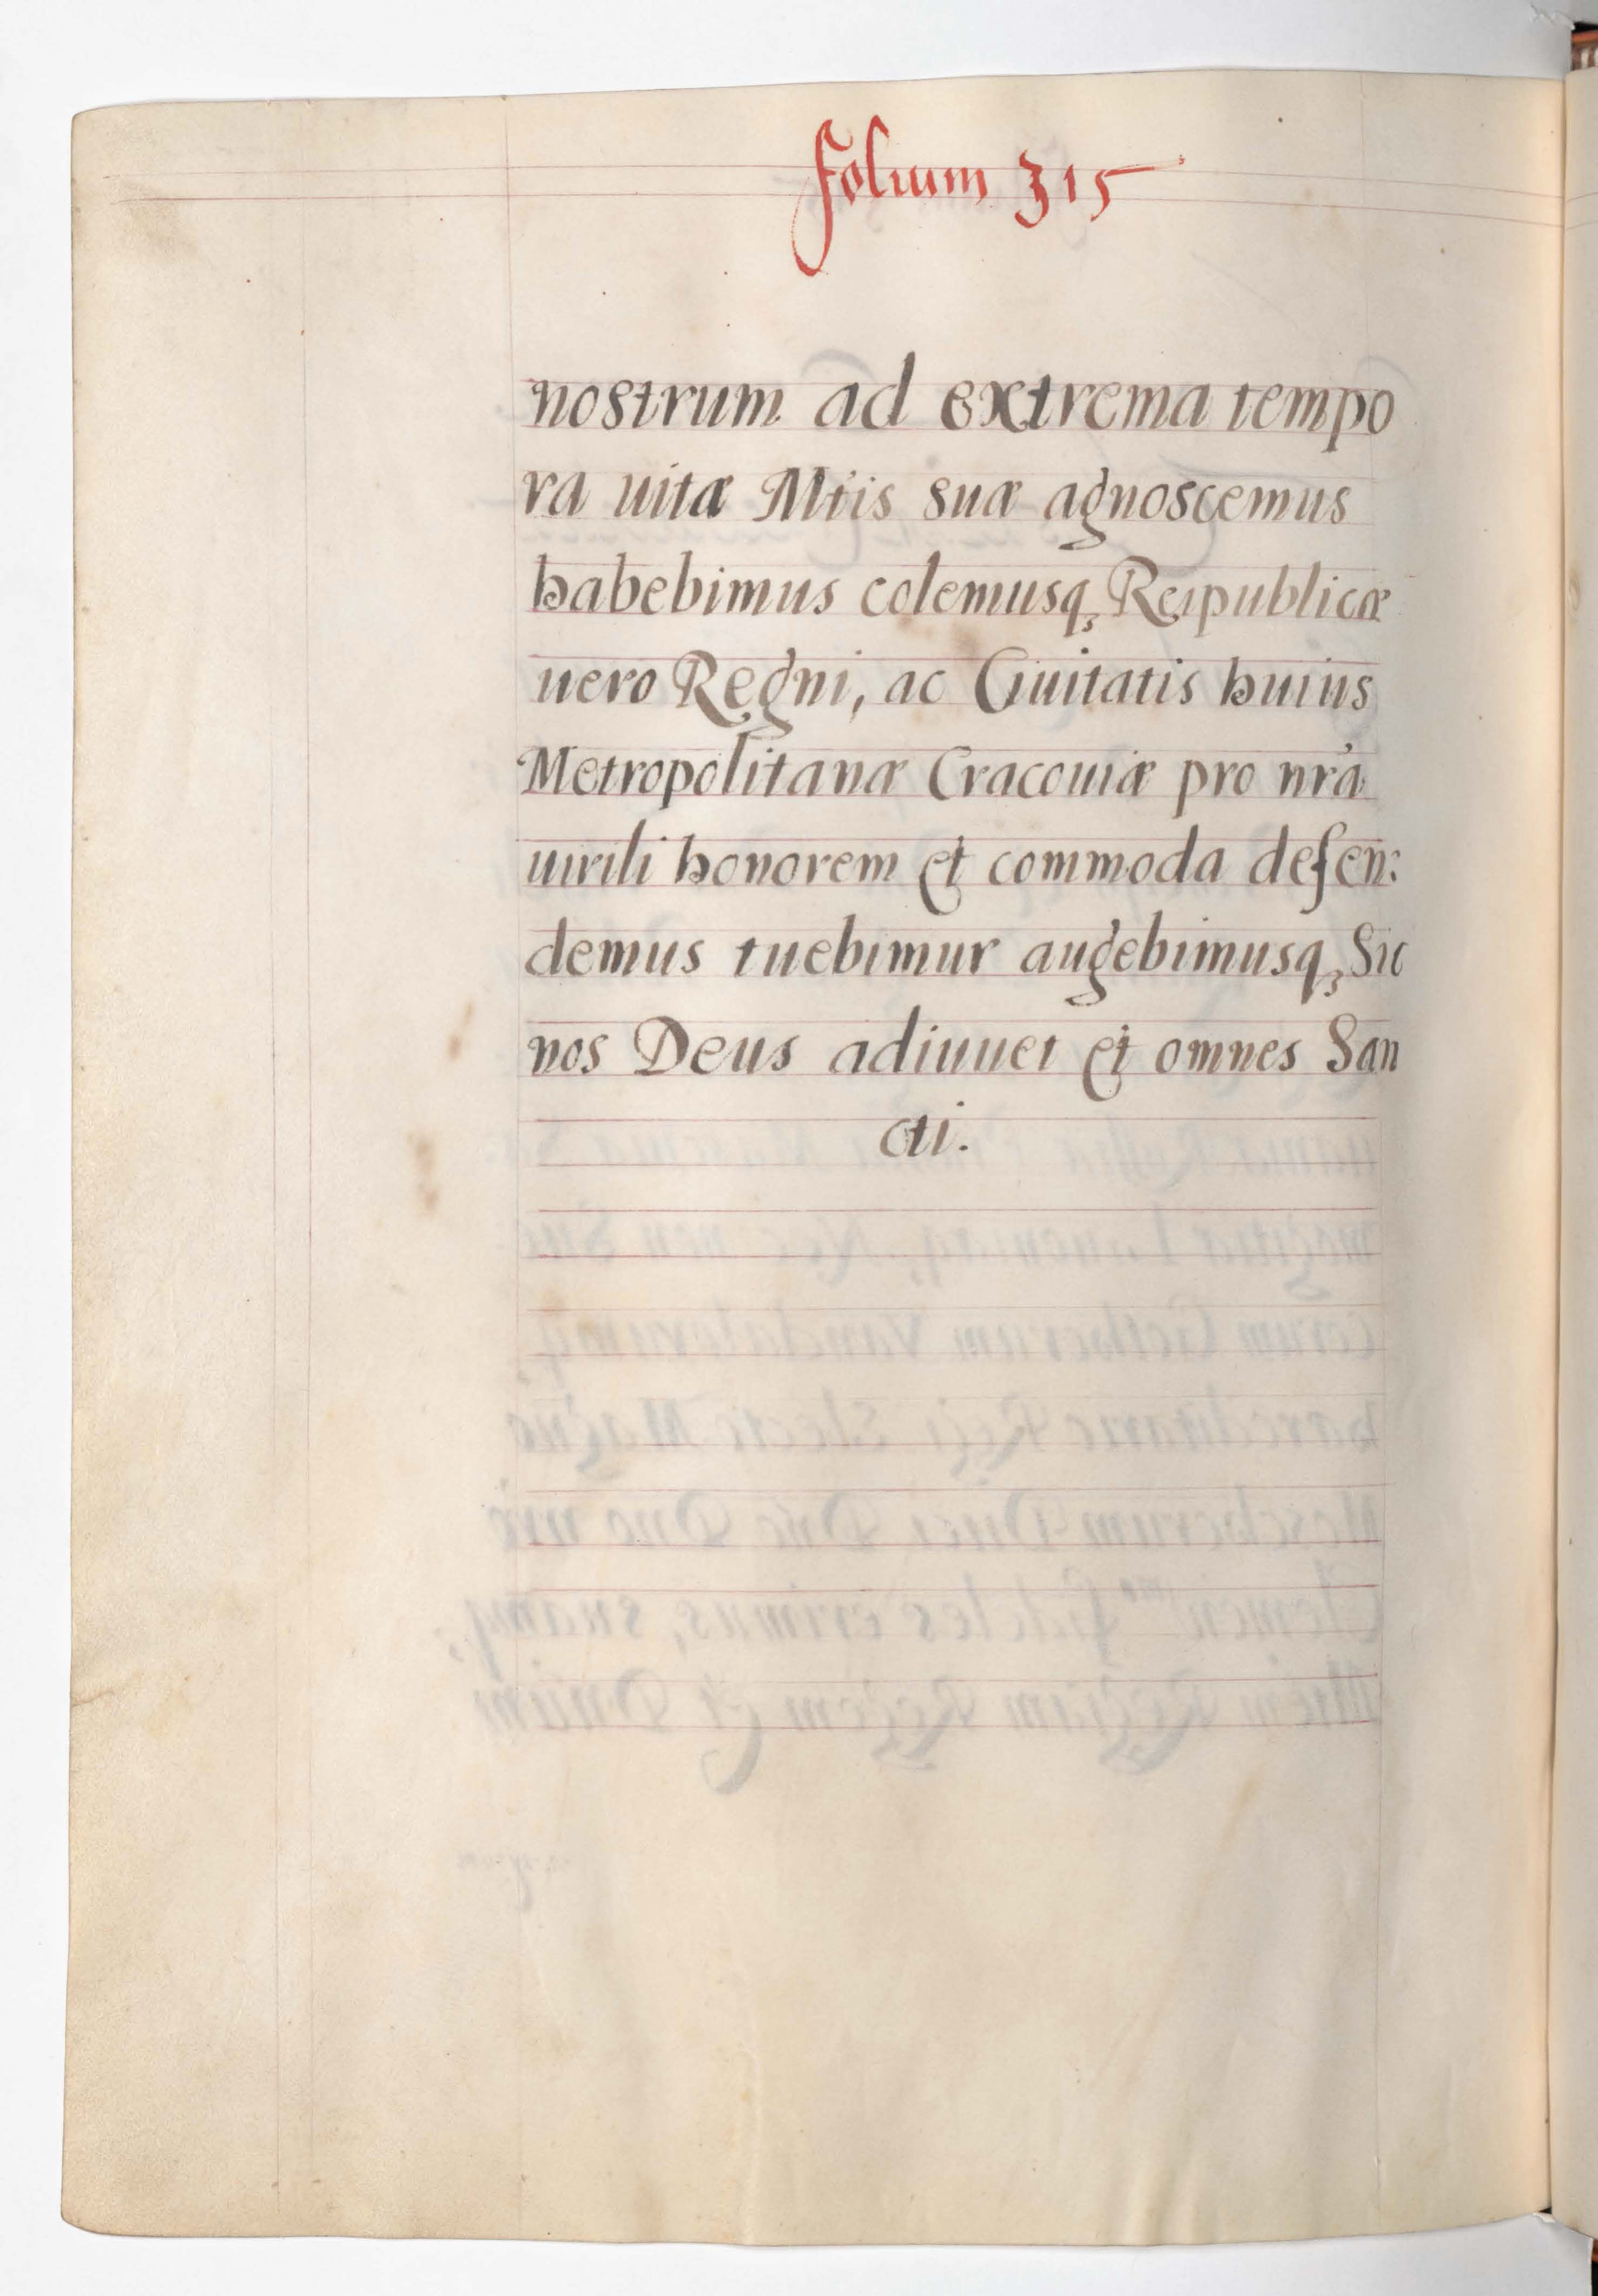 folium 315
nostrum ad extrema tempo
ra uitæ Mtis suæ agnoscemus
habebimus colemusq, Reipublicæ
uero Regni, ac Ciuitatis huius
Metropolitanæ Cracouiæ pro nrá
uirili honorem et commoda defen:
demus tuebimur augebimusq, Sic
nos Deus adiuuet et omnes San
cti.